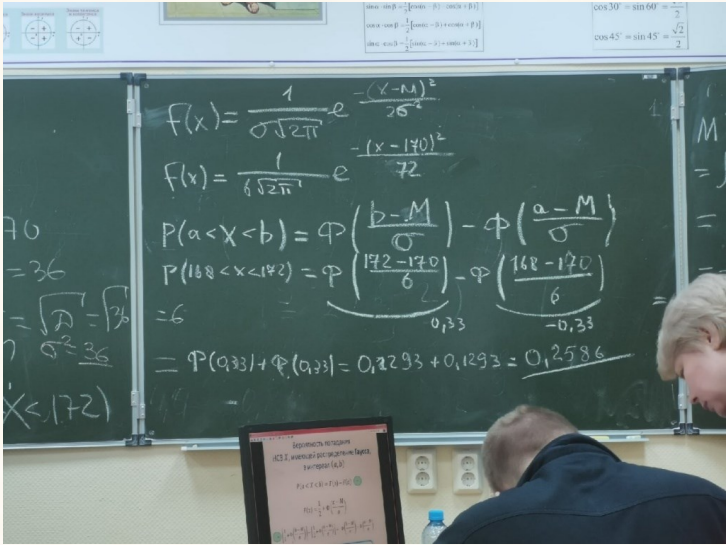 cos30° = sin60° = /2
cos45° = sin45° = √2/2
f(x) = 1/(σ√2π) e^(-(x-M)²/2σ²)
f(x) = 1/(6√2π) e^(-(x-170)²/72)
P(a<X<b) = Φ((b-M)/σ) - Φ((a-M)/σ)
P(168<x<172) = Φ((172-170)/6) - Φ((168-170)/6)
0,33 -0,33
= Φ(0,33) + Φ(0,33) = 0,1293 + 0,1293 = 0,2586
70
= 36
= √D = √36 = 6
σ² = 36
X < 172)
M
=
Вероятность попадания
НСВ X, имеющей распределение Гаусса,
в интервал (a, b)